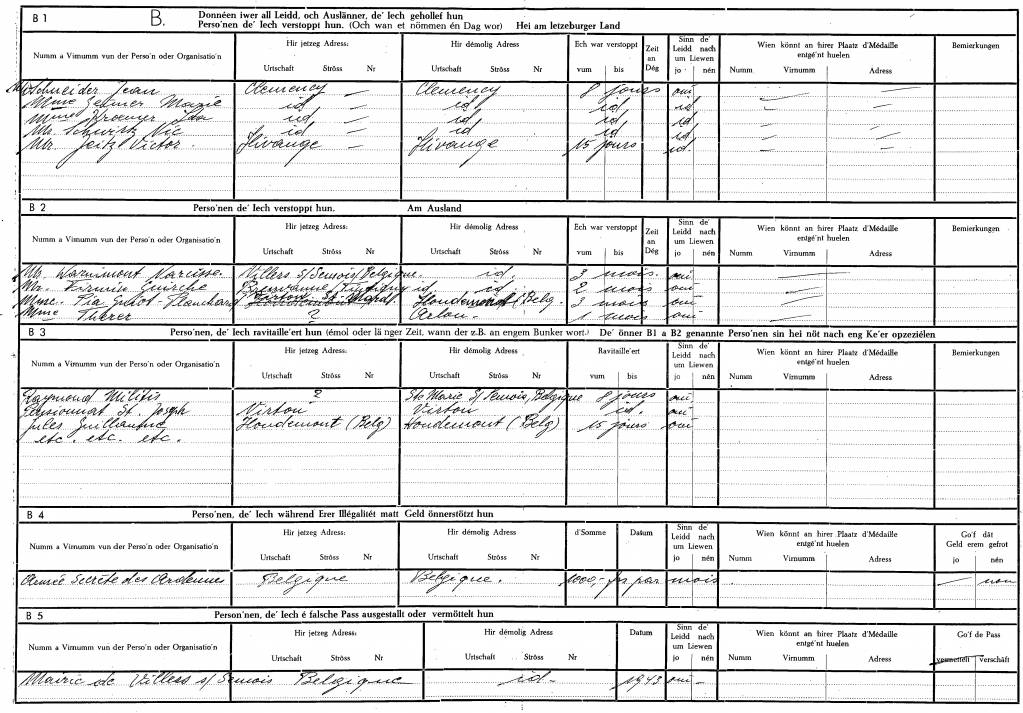 B 1 B. Donnéen iwer all Leidd, och Auslänner, de' Iech gehollef hun
Perso'nen de' Iech verstoppt hun. (Och wan et nömmen én Dag wor) Hei am letzeburger Land
Numm a Virnumm vun der Perso'n oder Organisatio'n Hir jetzeg Adress: Hir démolig Adress Ech war verstoppt Zeit an Dég Sinn de' Leidd nach um Liewen Wien könnt an hirer Plaatz d'Médaille entgé'nt huelen Bemierkungen
Urtschaft Ströss Nr Urtschaft Ströss Nr vum bis jo nén Numm Virnumm Adress
Schneider Jean Clemency — Clemency 8 jours oui — —
Mme Zehner Marie id — id id id — —
Mme id — id id id — —
Mr. Schwirtz Nic id — id id id — —
Mr. Jeitz Victor. Hivange — Hivange 15 jours id. — —
B 2 Perso'nen de' Iech verstoppt hun. Am Ausland
Numm a Virnumm vun der Perso'n oder Organisatio'n Hir jetzeg Adress: Hir démolig Adress Ech war verstoppt Zeit an Dég Sinn de' Leidd nach um Liewen Wien könnt an hirer Plaatz d'Médaille entgé'nt huelen
Urtschaft Ströss Nr Urtschaft Ströss Nr vum bis jo nén Numm Virnumm Adress
Mr. Warnimont Narcisse. Villers s/Semois/Belgique. id. 3 mois. oui —
Mr. Firmin id 2 mois oui —
Mme. Pia - Planchard Virton St. Mard. Houdemont (Belg. 3 mois oui —
Mme Therer ? Arlon. 1 mois oui —
B 3 Perso'nen, de' Iech ravitaille'ert hun (émol oder lä nger Zeit, wann der z.B. an engem Bunker wort.) De' önner B1 a B2 genannte Perso'nen sin hei nöt nach eng Ke'er opzeziélen
Numm a Virnumm vun der Perso'n oder Organisatio'n Hir jetzeg Adress: Hir démolig Adress Ravitaille'ert Sinn de' Leidd nach um Liewen Wien könnt an hirer Plaatz d'Médaille entgé'nt huelen Bemierkungen
Urtschaft Ströss Nr Urtschaft Ströss Nr vum bis jo nén Numm Virnumm Adress
Raymond Militis ? Ste Marie S/Semois, Belgique 8 jours oui
Pensionnat St. Joseph Virton Virton id. oui
Jules Houdemont (Belg) Houdemont (Belg) 15 jours oui
etc. etc. etc.
B 4 Perso'nen, de' Iech während Erer Illégalitét matt Geld önnerstötzt hun
Numm a Virnumm vun der Perso'n oder Organisatio'n Hir jetzeg Adress: Hir démolig Adress d'Somme Datum Sinn de' Leidd nach um Liewen Wien könnt an hirer Plaatz d'Médaille entgé'nt huelen Go'f dât Geld erem gefrot
Urtschaft Ströss Nr Urtschaft Ströss Nr jo nén Numm Virnumm Adress jo nén
Armée Secrète des Ardennes Belgique Belgique. 1000,- frs par mois — non
B 5 Person'nen, de' Iech é falsche Pass ausgestallt oder vermöttelt hun
Numm a Virnumm vun der Perso'n oder Organisatio'n Hir jetzeg Adress: Hir démolig Adress Datum Sinn de' Leidd nach um Liewen Wien könnt an hirer Plaatz d'Médaille entgé'nt huelen Go'f de Pass
Urtschaft Ströss Nr Urtschaft Ströss Nr jo nén Numm Virnumm Adress vermettelt verschäft
Mairie de Villers s/Semois Belgique id- 1943 oui -